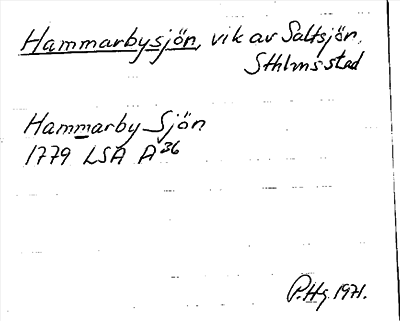 Hammarbysjön, vik av Saltsjön,
Sthlms stad
Hammarby Sjön
1779 LSA A 36
P.Hg. 1971.